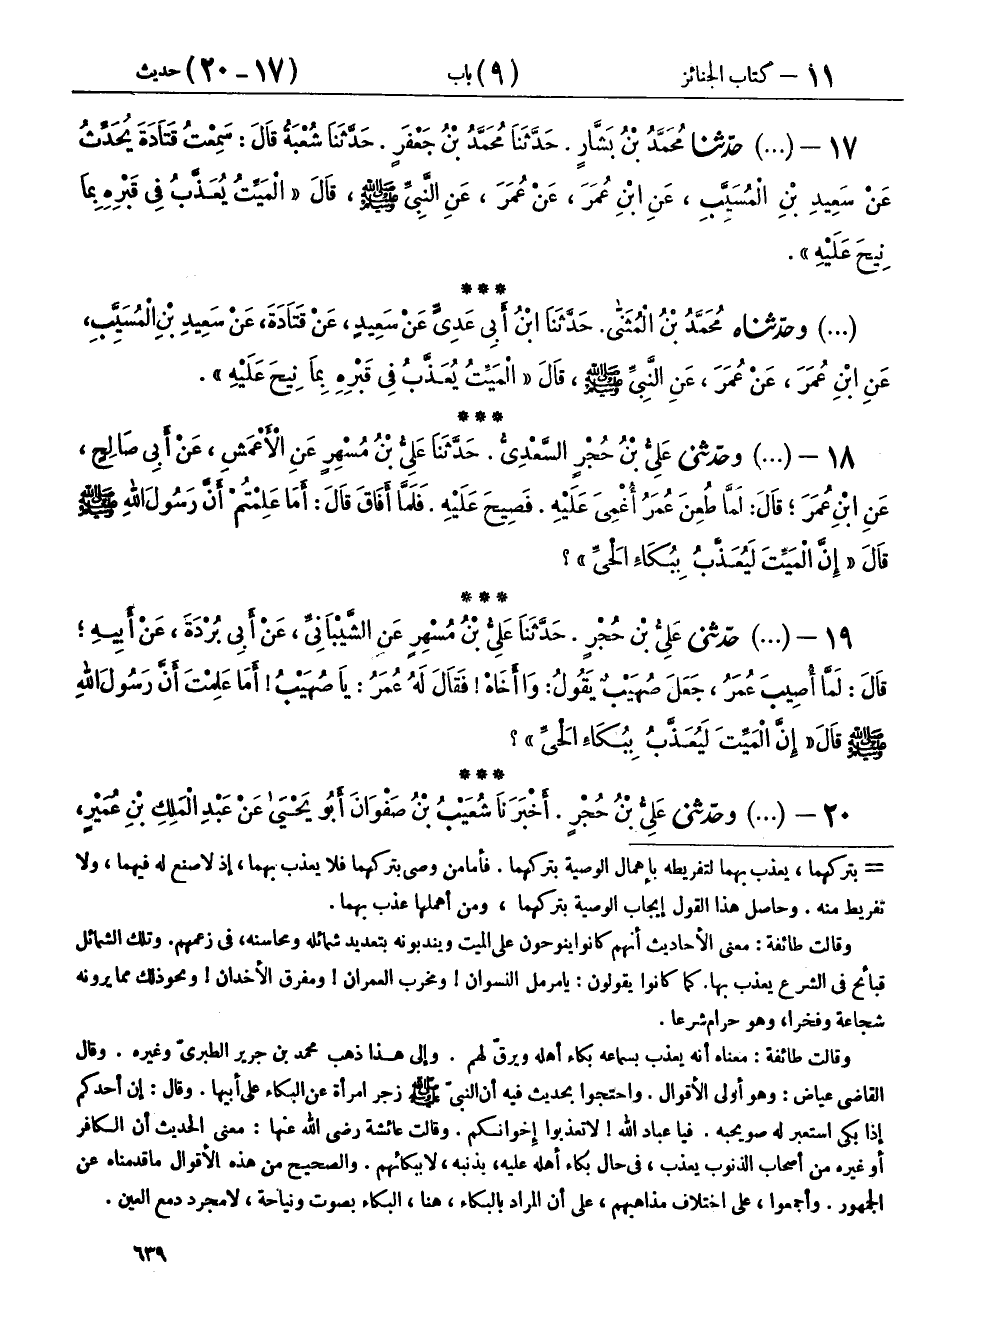 ١١ – كتاب الجنائز (٩) باب (١٧ – ٢٠) حديث
١٧ – (...) حدّثنا مُحَمَّدُ بْنُ بَشَّارٍ . حَدَّثَنَا مُحَمَّدُ بْنُ جَعْفَرٍ . حَدَّثَنَا شُعْبَةُ قَالَ : سَمِعْتُ قَتَادَةَ يُحَدِّثُ
عَنْ سَعِيدِ بْنِ الْمُسَيَّبِ ، عَنِ ابْنِ عُمَرَ ، عَنْ عُمَرَ ، عَنِ النَّبِيِّ ﷺ ، قَالَ « الْمَيِّتُ يُعَذَّبُ فِى قَبْرِهِ بِمَا
نِيحَ عَلَيْهِ » .
***
(...) وحدّثناه مُحَمَّدُ بْنُ الْمُثَنَّى . حَدَّثَنَا ابْنُ أَبِى عَدِىٍّ عَنْ سَعِيدٍ ، عَنْ قَتَادَةَ، عَنْ سَعِيدِ بْنِ الْمُسَيَّبِ،
عَنِ ابْنِ عُمَرَ ، عَنْ عُمَرَ ، عَنِ النَّبِيِّ ﷺ ، قَالَ « الْمَيِّتُ يُعَذَّبُ فِى قَبْرِهِ بِمَا نِيحَ عَلَيْهِ » .
***
١٨ – (...) وحدّثنى عَلِىُّ بْنُ حُجْرٍ السَّعْدِىُّ . حَدَّثَنَا عَلِىُّ بْنُ مُسْهِرٍ عَنِ الْأَعْمَشِ ، عَنْ أَبِى صَالِحٍ ،
عَنِ ابْنِ عُمَرَ ؛ قَالَ: لَمَّا طُعِنَ عُمَرُ أُغْمِىَ عَلَيْهِ . فَصِيحَ عَلَيْهِ . فَلَمَّا أَفَاقَ قَالَ : أَمَا عَلِمْتُمْ أَنَّ رَسُولَ اللهِ ﷺ
قَالَ « إِنَّ الْمَيِّتَ لَيُعَذَّبُ بِبُكَاءِ الْحَىِّ » ؟
***
١٩ – (...) حدّثنى عَلِىُّ بْنُ حُجْرٍ . حَدَّثَنَا عَلِىُّ بْنُ مُسْهِرٍ عَنِ الشَّيْبَانِىِّ ، عَنْ أَبِى بُرْدَةَ ، عَنْ أَبِيهِ ؛
قَالَ : لَمَّا أُصِيبَ عُمَرُ ، جَعَلَ صُهَيْبٌ يَقُولُ: وَا أَخَاهْ ! فَقَالَ لَهُ عُمَرُ : يَا صُهَيْبُ ! أَمَا عَلِمْتَ أَنَّ رَسُولَ اللهِ
ﷺ قَالَ « إِنَّ الْمَيِّتَ لَيُعَذَّبُ بِبُكَاءِ الْحَىِّ » ؟
***
٢٠ – (...) وحدّثنى عَلِىُّ بْنُ حُجْرٍ . أَخْبَرَنَا شُعَيْبُ بْنُ صَفْوَانَ أَبُو يَحْيَىٰ عَنْ عَبْدِ الْمَلِكِ بْنِ عُمَيْرٍ،
== بتركهما ، يعذب بهما لتفريطه بإهمال الوصية بتركهما . فأمامن وصى بتركهما فلا يعذب بهما ، إذ لاصنع له فيهما ، ولا
تفريط منه . وحاصل هذا القول إيجاب الوصية بتركهما ، ومن أهملها عذب بهما .
وقالت طائفة : معنى الأحاديث أنهم كانوا ينوحون على الميت ويندبونه بتعديد شمائله ومحاسنه، فى زعمهم. وتلك الشمائل
قبائح فى الشرع يعذب بها. كما كانوا يقولون : يامرمل النسوان ! ومخرب العمران ! ومفرق الأخدان ! ونحو ذلك مما يرونه
شجاعة وفخرا، وهو حرام شرعا .
وقالت طائفة : معناه أنه يعذب بسماعه بكاء أهله ويرقّ لهم . وإلى هـذا ذهب محمد بن جرير الطبرىّ وغيره . وقال
القاضى عياض : وهو أولى الأقوال . واحتجوا بحديث فيه أن النبىّ ﷺ زجر امرأة عن البكاء على أبيها . وقال : إن أحدكم
إذا بكى استعبر له صويحبه . فيا عباد الله ! لاتعذبوا إخوانكم . وقالت عائشة رضى الله عنها : معنى الحديث أن الكافر
أو غيره من أصحاب الذنوب يعذب ، فى حال بكاء أهله عليه، بذنبه ، لا ببكائهم . والصحيح من هذه الأقوال ماقدمناه عن
الجمهور . وأجمعوا ، على اختلاف مذاهبهم ، على أن المراد بالبكاء ، هنا ، البكاء بصوت ونياحة ، لا مجرد دمع العين .
٦٣٩